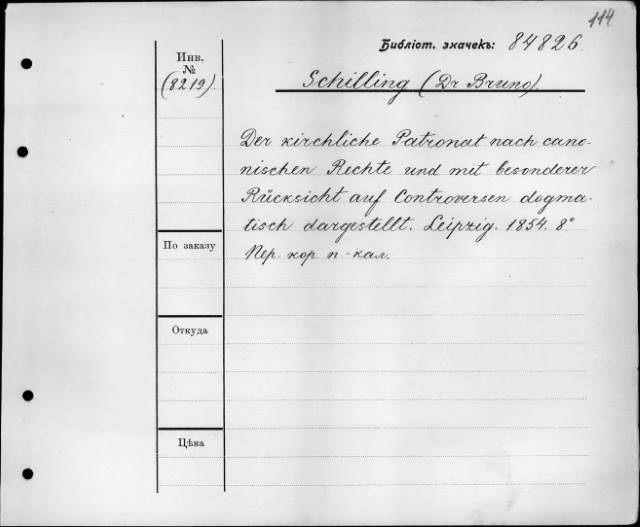 114
Библіот. значекъ: 84826.
Инв.
№
(8219)
Schilling (Dr Bruno).
Der kirchliche Patronat nach cano-
nischen Rechte und mit besonderer
Rücksicht auf Controversen dogma-
tisch dargestellt. Leipzig. 1854. 8°
Пер. кор. п.-кал.
По заказу
Откуда
Цѣна